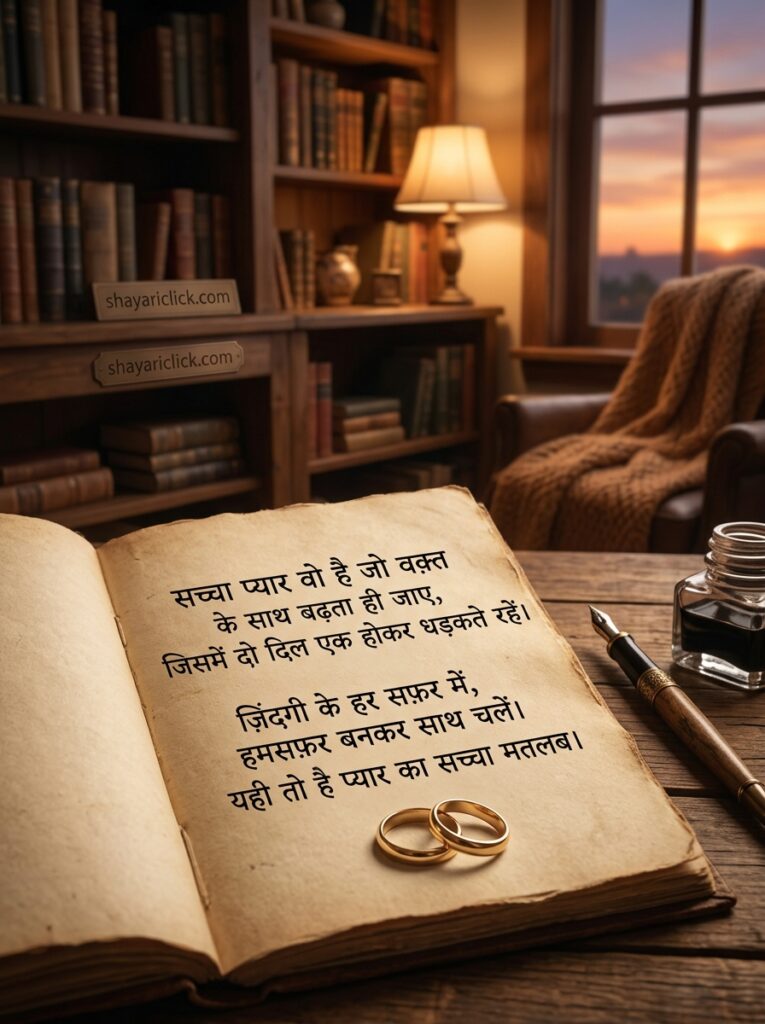 shayariclick.com
shayariclick.com
सच्चा प्यार वो है जो वक़्त
के साथ बढ़ता ही जाए,
जिसमें दो दिल एक होकर धड़कते रहें।
ज़िंदगी के हर सफ़र में,
हमसफ़र बनकर साथ चलें।
यही तो है प्यार का सच्चा मतलब।